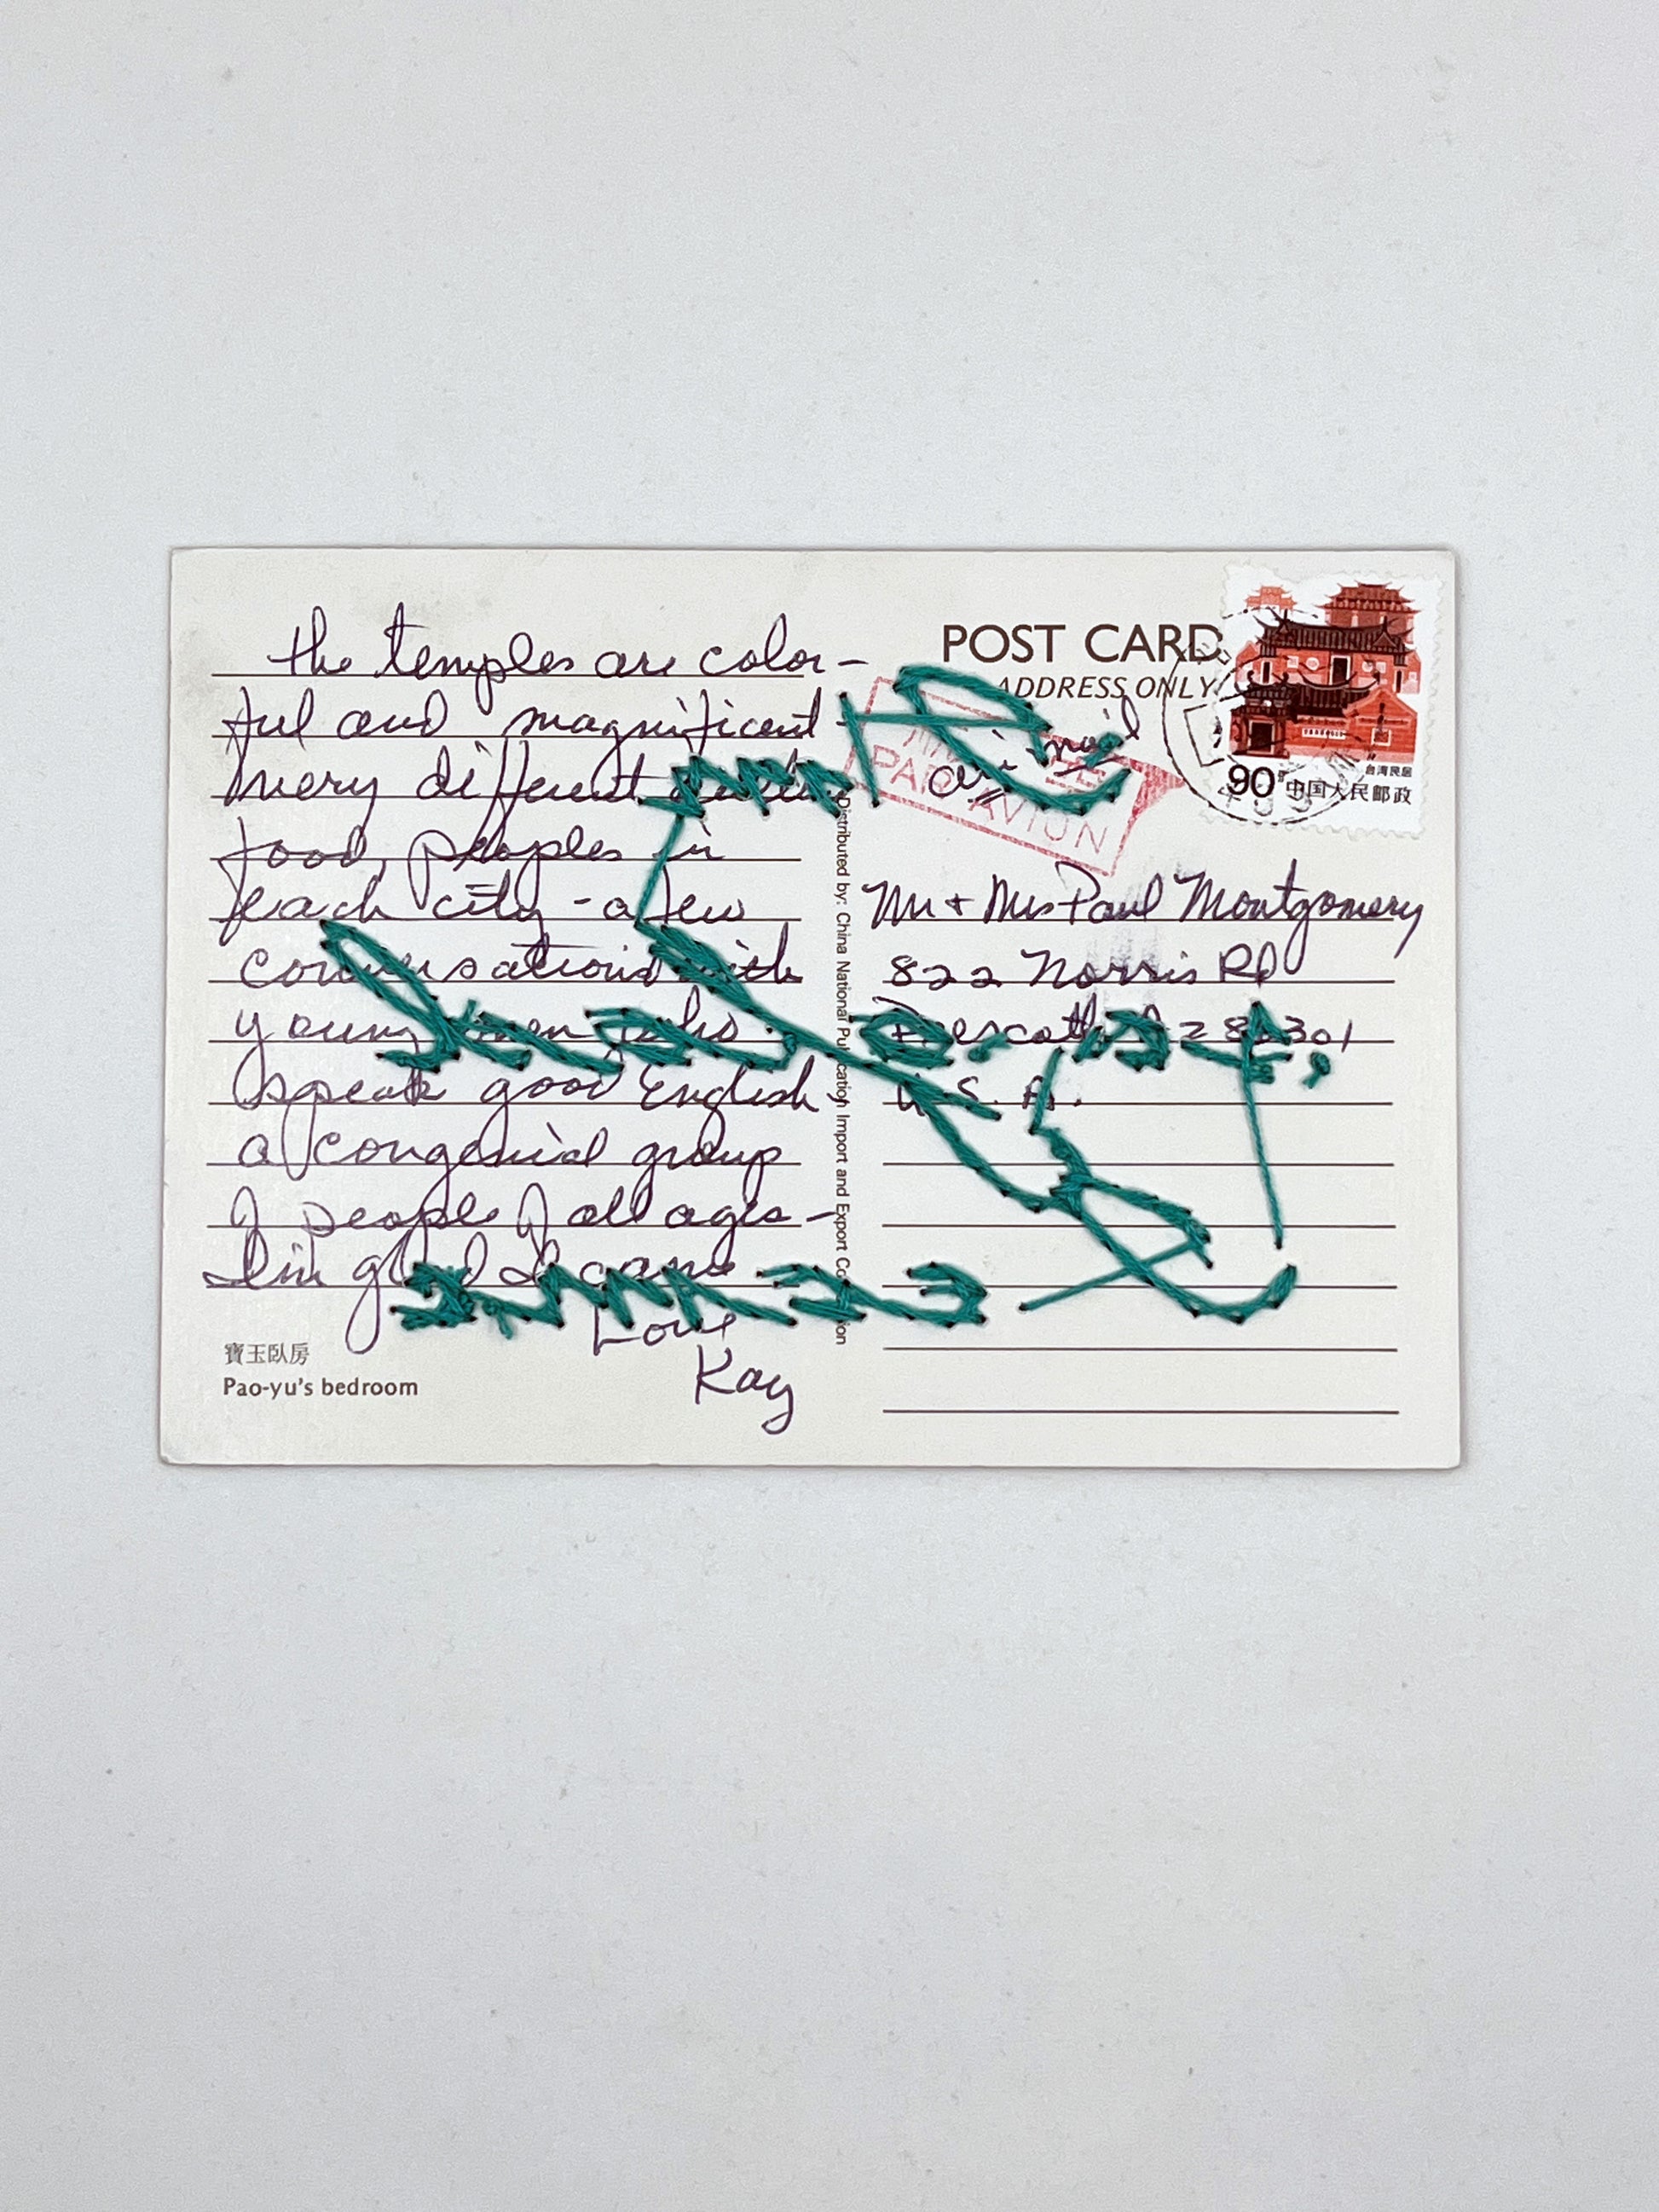 the temples are color-
ful and magnificent
very different
food, peoples in
each city - a few
conversations with
young men who
speak good English
a congenial group
of people of all ages -
I'm glad I came
Love
Kay
寶玉臥房
Pao-yu's bedroom
Distributed by: China National Publication Import and Export Corporation
POST CARD
ADDRESS ONLY
air mail
PAR AVION
90 中国人民邮政
台湾民居
Mr + Mrs Paul Montgomery
822 Norris Rd
Prescott Az 86301
U.S.A.